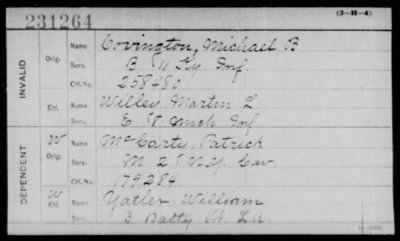 231264
(3-H-4)
INVALID
Orig. Name Covington, Michael B
Serv. B 11 Ky Inf.
Ctf. No. 258480
Ctf. Name Willey Martin L
Serv. E 8 Mich Inf
DEPENDENT
W Name McCarty, Patrick
Orig. Serv. M 2 N.Y. Cav.
Ctf. No. 179284
W Name Yatler William
Ctf. Serv. 3 Batty Vt. L A